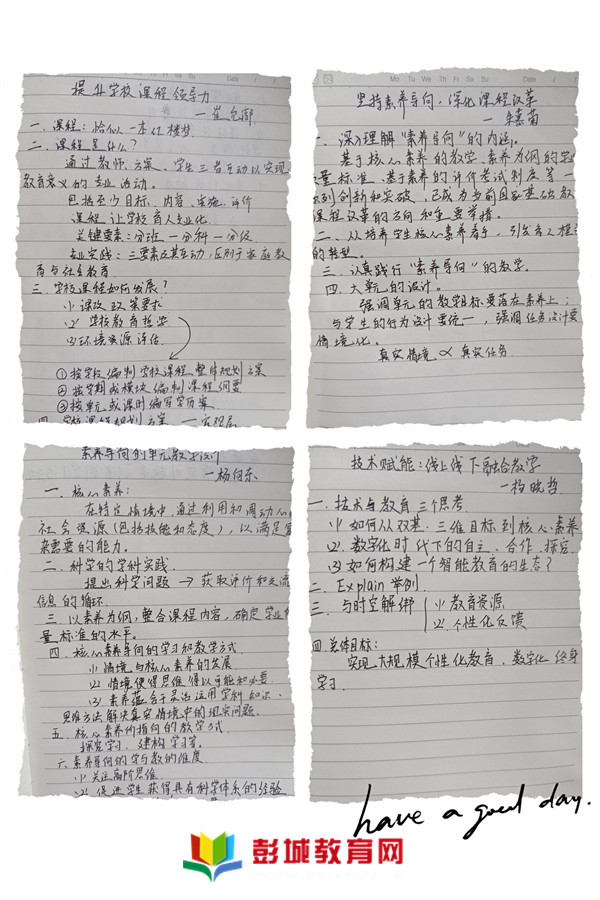 提升学校课程领导力
一崔允漷
一、课程:恰似一本红楼梦
二、课程是什么?
通过教师、方案、学生三者互动以实现
教育意义的专业活动。
包括至少目标、内容、实施、评价
课程让学校育人专业化
关键要素:分班一分科一分级
专业实践:三要素及其互动,区别于家庭教
育与社会教育
三、学校课程如何发展?
(1) 课改政策要求
(2) 学校教育哲学
(3) 环境资源评估
①按学段编制学校课程整体规划方案
②按学期或模块编制课程纲要
③按单元或课时编写学历案
四、学校课程规划方案
坚持素养导向,深化课程改革
一朱嘉菊
一、深入理解“素养导向”的内涵。
基于核心素养的教学、素养为纲的学
量标准、基于素养的评价考试制度等一
到创新和突破,已成为当前国家基础教
课程改革的方向和重要举措。
二、从培养学生核心素养着手,引发育人模
的转型。
三、认真践行“素养导向”的教学。
四、大单元的设计。
强调单元的教学目标要落在素养上;
与学生的行为设计要统一,强调任务设计要
情境化。
真实情境 ∝ 真实任务
素养导向的单元教学设计
一杨向东
一、核心素养:
在特定情境中,通过利用和调动心
社会资源(包括技能和态度),以满足复
杂需要的能力。
二、科学的学科实践
提出科学问题 → 获取评价和交流
信息的循环
三、以素养为纲,整合课程内容,确定学业
量标准的水平。
四、核心素养导向的学习和教学方式
(1) 情境与核心素养的发展
(2) 情境使得思维得以可能和必要
(3) 素养蕴含于灵活运用学科知识、
思维方法解决真实情境中的现实问题。
五、核心素养所指向的教学方式
探究学习、建构学习等。
六、素养导向的学与教的维度
(1) 关注高阶思维
(2) 促进学生获得具有科学体系的经验
技术赋能:线上线下融合教学
一杨晓哲
一、技术与教育三个思考
(1) 如何从双基、三维目标到核心素养
(2) 数字化时代下的自主、合作、探究
(3) 如何构建一个智能教育的生态?
二、Explain 举例
三、与时空解绑
(1) 教育资源
(2) 个性化反馈
四、总体目标:
实现大规模个性化教育,数字化终身
学习
have a good day.
彭城教育网